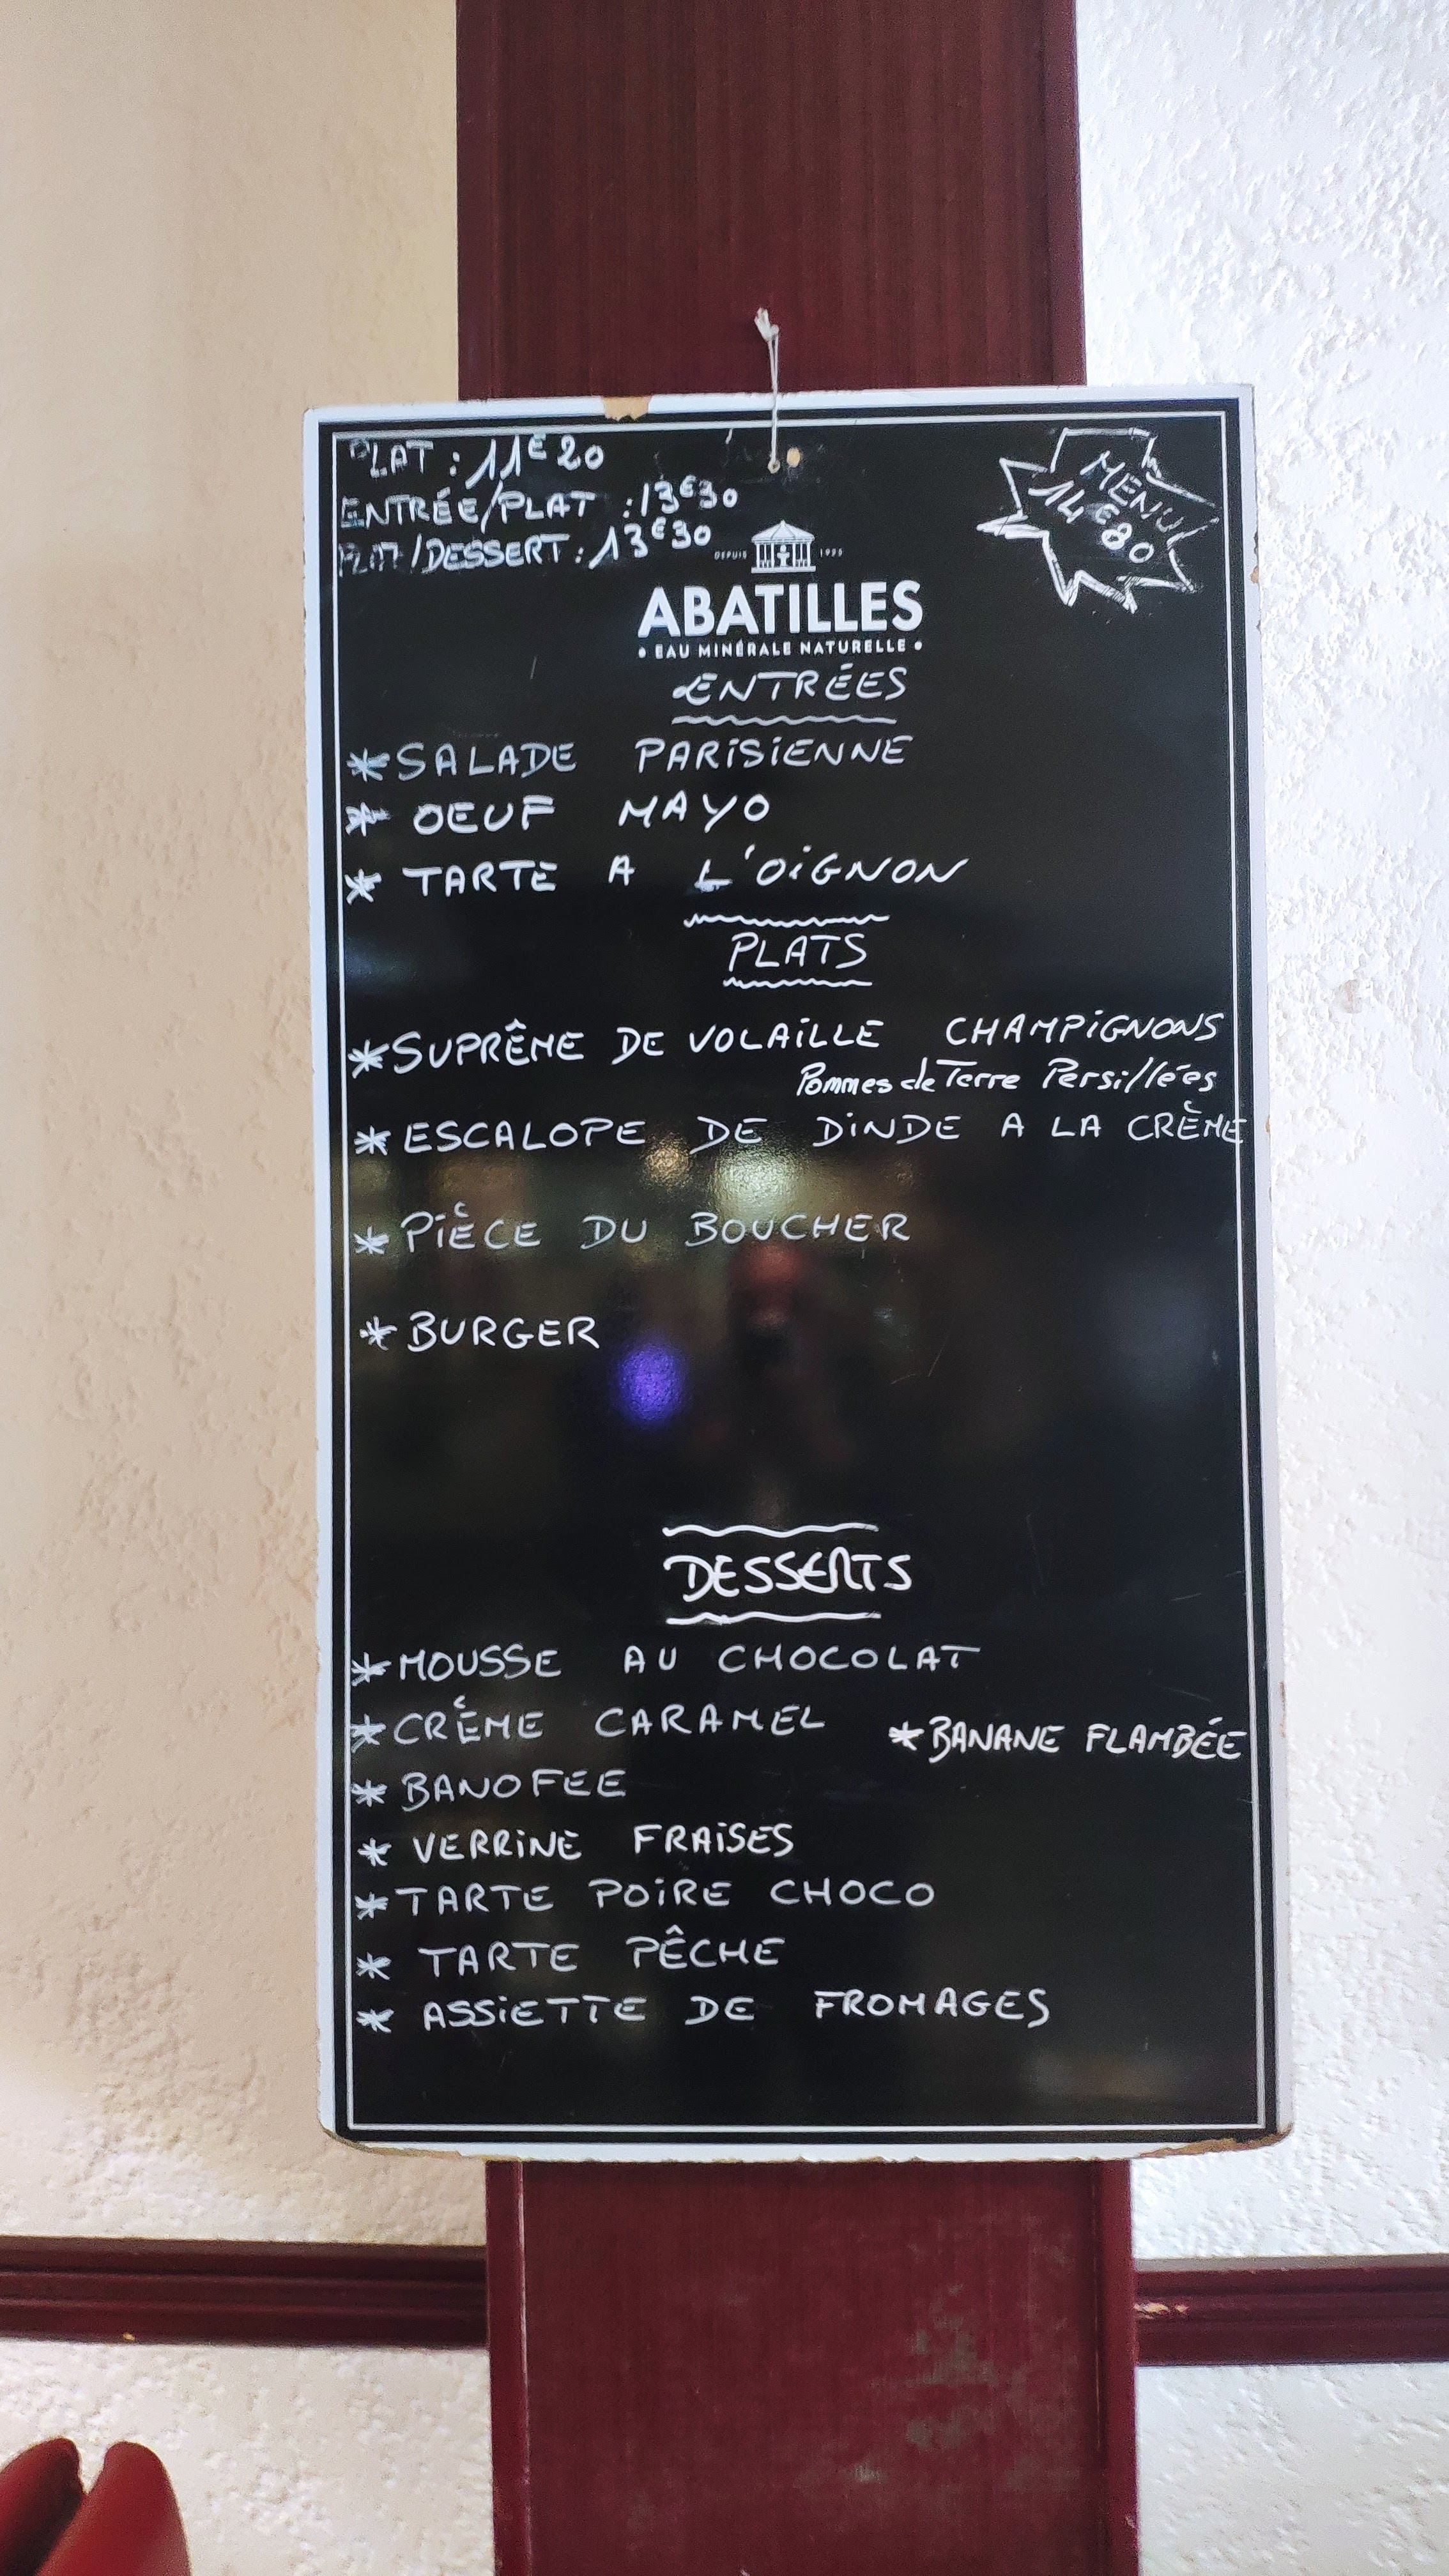 PLAT : 11€20
ENTRÉE/PLAT : 13€30
PLAT/DESSERT : 13€30
MENU
14€80
DEPUIS 1925
ABATILLES
• EAU MINÉRALE NATURELLE •
ENTRÉES
* SALADE PARISIENNE
* OEUF MAYO
* TARTE A L'OIGNON
PLATS
* SUPRÊME DE VOLAILLE CHAMPIGNONS
Pommes de Terre Persillées
* ESCALOPE DE DINDE A LA CRÈME
* PIÈCE DU BOUCHER
* BURGER
DESSERTS
* MOUSSE AU CHOCOLAT
* CRÈME CARAMEL
* BANANE FLAMBÉE
* BANOFEE
* VERRINE FRAISES
* TARTE POIRE CHOCO
* TARTE PÊCHE
* ASSIETTE DE FROMAGES